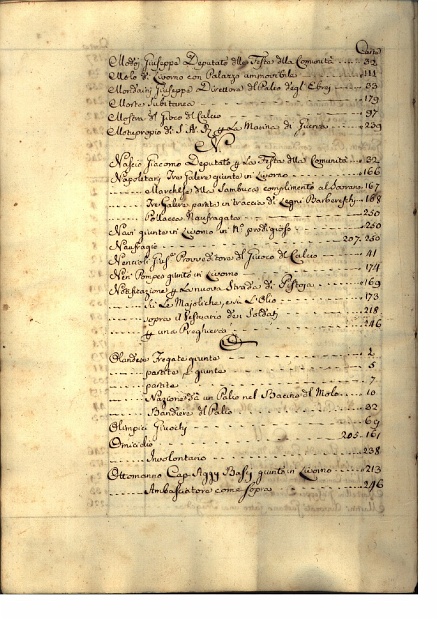 Carte
Modoj Giuseppe Deputato della Festa della Comunità 32
Molo di Livorno con Palazzo immobibile 111
Mondain Giuseppe Direttore del Palio degl'Ebrej 33
Morte Subitanea 179
Mostra del Gioco del Calcio 97
Motuproprio di S. A. R. p La Marina di Guerra 239
N
Nascio Giacomo Deputato p La Festa della Comunità 32
Napolitanj Tre Galere giunte in Livorno 166
Marchese della Sambuca complimento al 167
Tre Galere partite in traccia di Legni Barbereschj 168
Pollacca Naufragata 250
Navi giunte in Livorno in N.º prodigioso 250
Naufragio 207. 250
Nencioli Gius.e Provveditore del Giuoco del Calcio 41
Neri Pompeo giunto in Livorno 174
Notificazione p La nuova Strada di Pistoja 169
Sù Le Majoliche, e sù L'Olio 173
sopra il Vestiario dei Soldatj 218
p una Preghiera 246
O
Olandese Fregate giunte 2
partite e giunte 5
partite 7
Nazione Fà un Palio nel Bacino del Molo 10
Bandiere del Palio 32
Olimpici Giuochj 69
Omicidio 205. 161
Involontario 238
Ottomanno Cap. Aggy Bassy giunto in Livorno 213
Ambasciatore come sopra 246